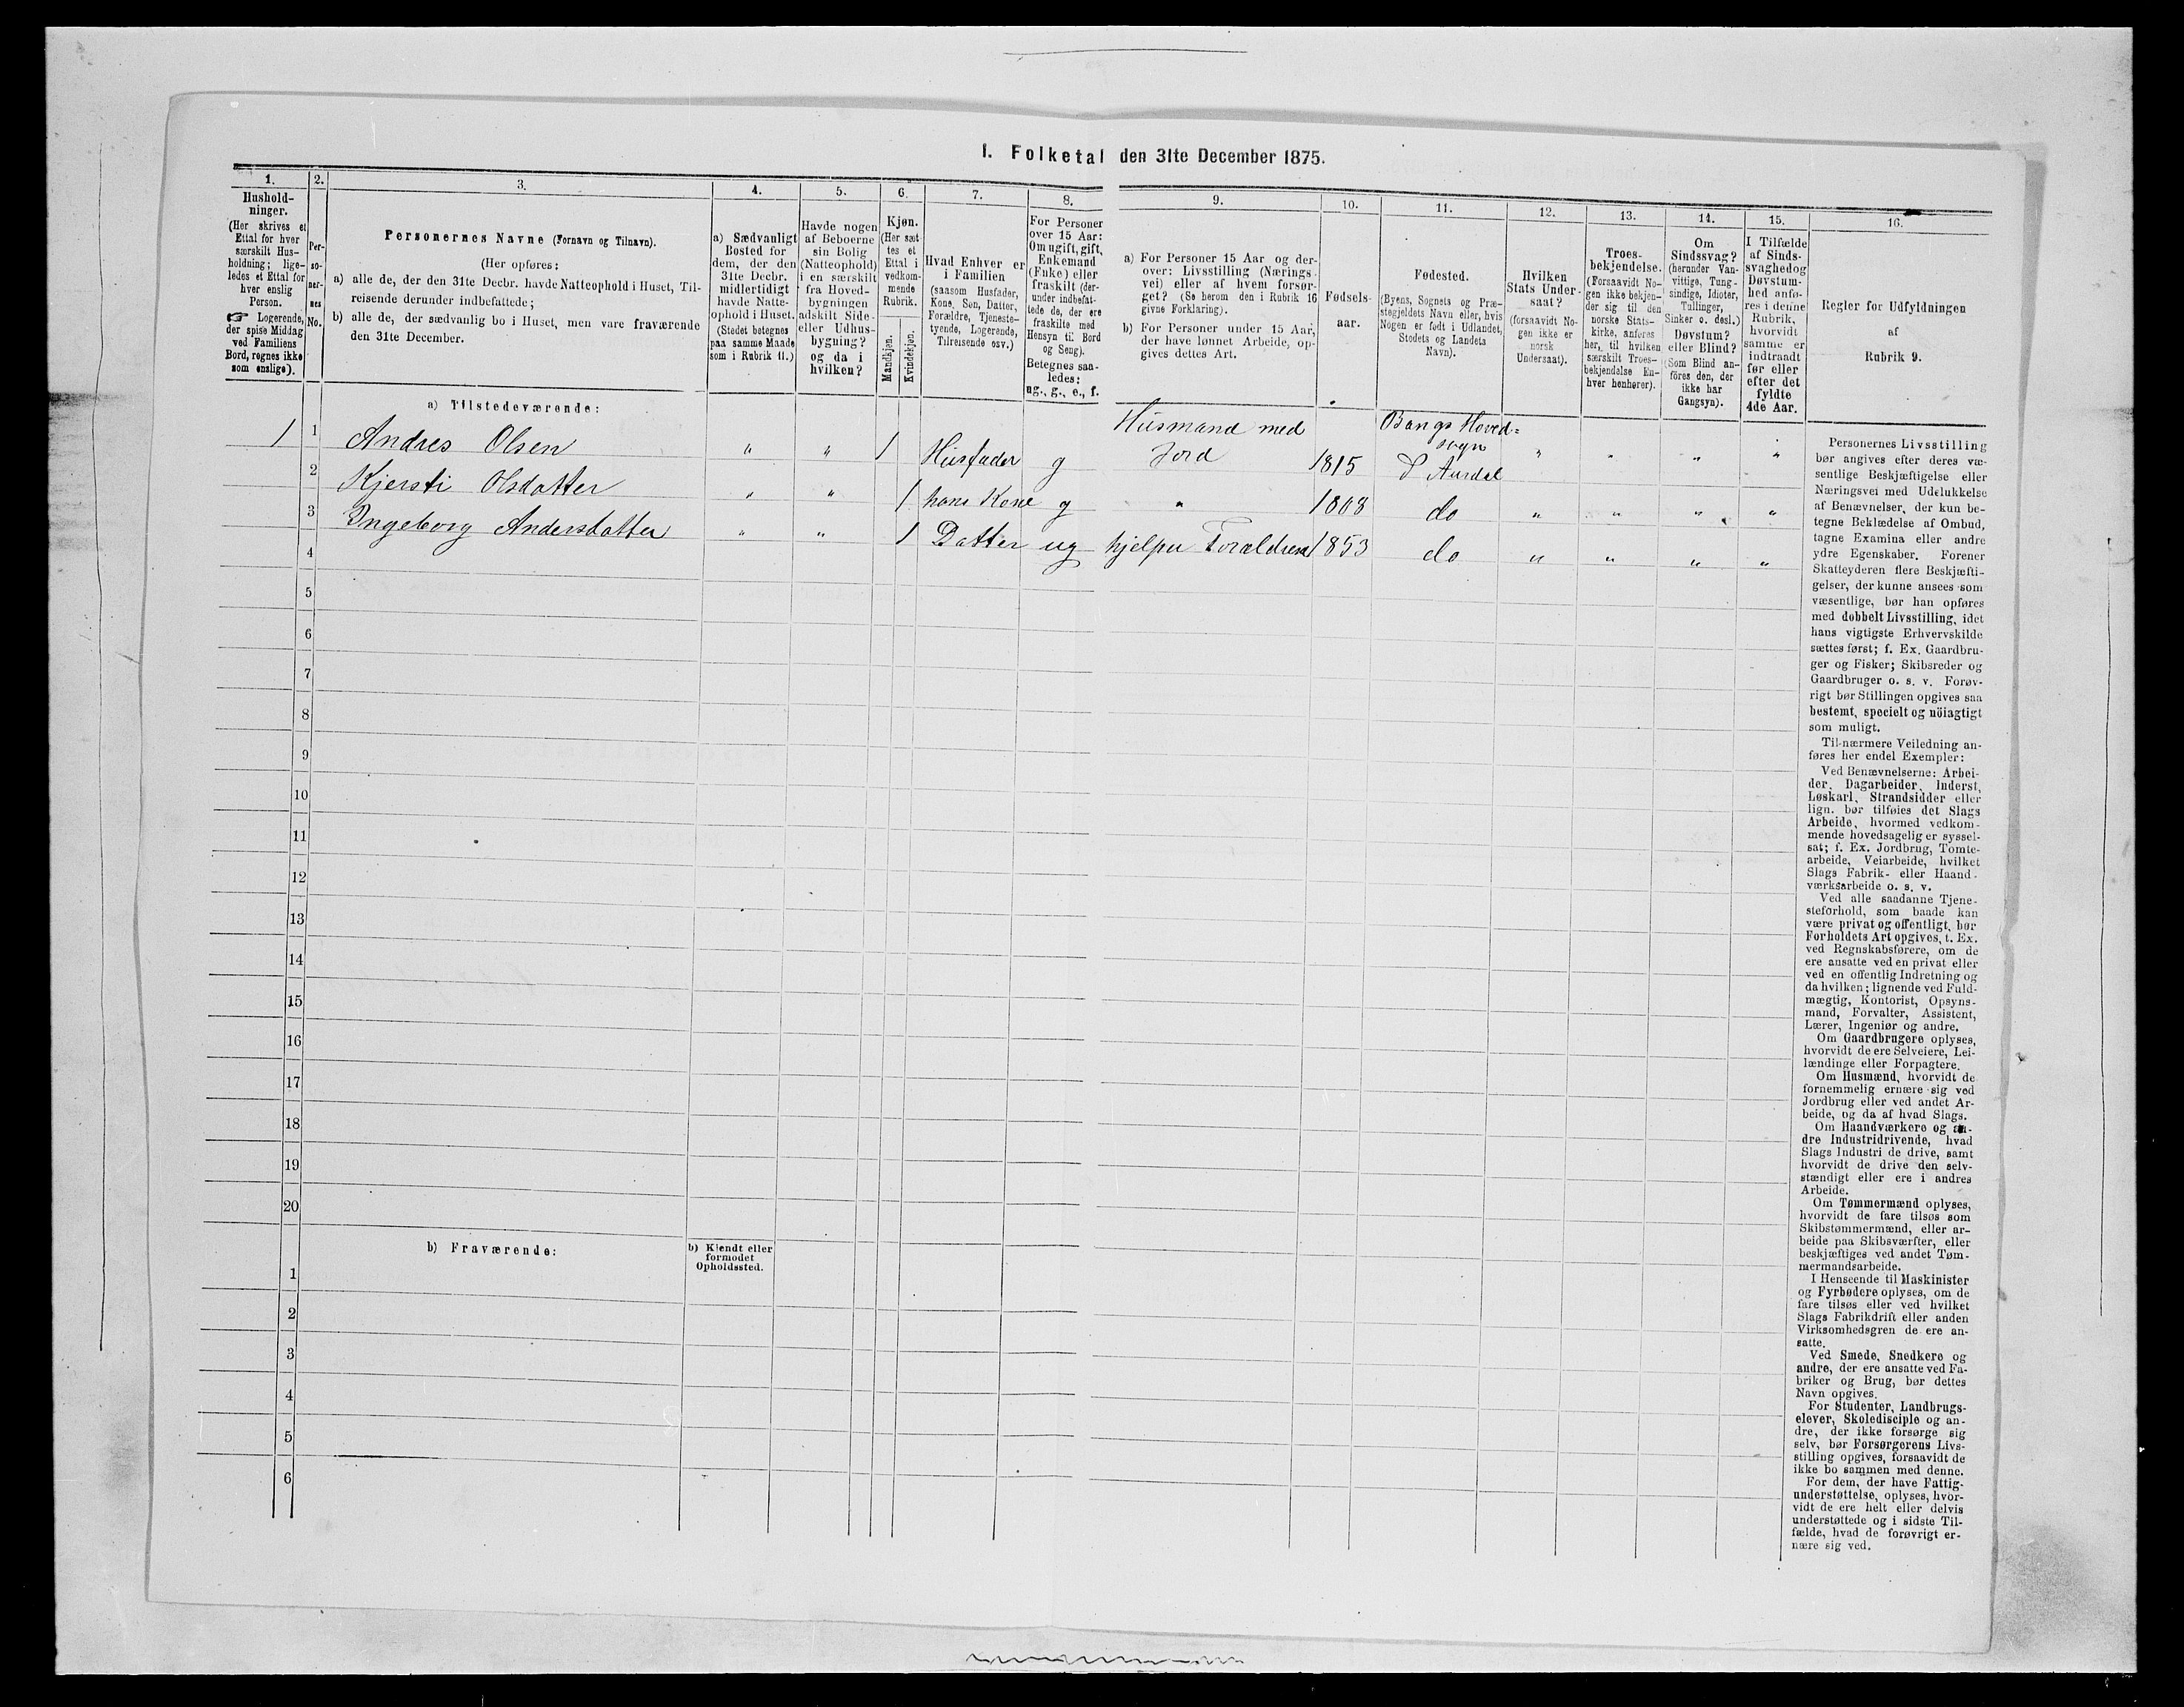 I. Folketal den 31te December 1875.
1.
Hushold-
ninger.
(Her skrives et
Ettal for hver
særskilt Hus-
holdning; lige-
ledes et Ettal for
hver enslig
Person.
☞ Logerende,
der spise Middag
ved Familiens
Bord, regnes ikke
som enslige).
2.
Per-
so-
ner-
nes
No.
3.
Personernes Navne (Fornavn og Tilnavn).
(Her opføres:
a) alle de, der den 31te Decbr. havde Natteophold i Huset, Til-
reisende derunder indbefattede;
b) alle de, der sædvanlig bo i Huset, men vare fraværende
den 31te December.
4.
a) Sædvanligt
Bosted for
dem, der den
31te Decbr.
midlertidigt
havde Natte-
ophold i Huset.
(Stedet betegnes
paa samme Maade
som i Rubrik 11.)
5.
Havde nogen
af Beboerne
sin Bolig
(Natteophold)
i en særskilt
fra Hoved-
bygningen
adskilt Side-
eller Udhus-
bygning?
og da i
hvilken?
6.
Kjøn.
(Her sæt-
tes et
Ettal i
vedkom-
mende
Rubrik.
Mandkjøn.
Kvindekjøn.
7.
Hvad Enhver er
i Familien
(saasom Husfader,
Kone, Søn, Datter,
Forældre, Tjeneste-
tyende, Logerende,
Tilreisende osv.)
8.
For Personer
over 15 Aar:
Om ugift, gift,
Enkemand
(Enke) eller
fraskilt (der-
under indbefat-
tede de, der ere
fraskilte med
Hensyn til Bord
og Seng).
Betegnes saa-
ledes:
ug., g., e., f.
9.
a) For Personer 15 Aar og der-
over: Livsstilling (Nærings-
vei) eller af hvem forsør-
get? (Se herom den i Rubrik 16
givne Forklaring).
b) For Personer under 15 Aar,
der have lønnet Arbeide, op-
gives dettes Art.
10.
Fødsels-
aar.
11.
Fødested.
(Byens, Sognets og Præ-
stegjeldets Navn eller, hvis
Nogen er født i Udlandet,
Stedets og Landets
Navn).
12.
Hvilken
Stats Under-
saat?
(forsaavidt No-
gen ikke er
norsk
Undersaat).
13.
Troes-
bekjendelse.
(Forsaavidt No-
gen ikke bekjen-
der sig til den
norske Stats-
kirke, anføres
her, til hvilken
særskilt Troes-
bekjendelse En-
hver henhører).
14.
Om
Sindssvag?
(herunder Van-
vittige, Tung-
sindige, Idioter,
Tullinger,
Sinker o. desl.)
Døvstum?
eller Blind?
(Som Blind an-
føres den, der
ikke har
Gangsyn).
15.
I Tilfælde
af Sinds-
svaghed og
Døvstum-
hed anfø-
res i denne
Rubrik,
hvorvidt
samme er
indtraadt
før eller
efter det
fyldte
4de Aar.
16.
Regler for Udfyldningen
af
Rubrik 9.
a) Tilstedeværende:
1 1 Andres Olsen " " 1 Husfader g Husmand med Jord 1815 Bangs Hoved= sogn S Aurdal " " " "
2 Kjersti Olsdatter " " 1 hans Kone g " 1808 do " " " "
3 Ingeborg Andersdatter " " 1 Datter ug hjelper Forældrene 1853 do " " " "
4
5
6
7
8
9
10
11
12
13
14
15
16
17
18
19
20
b) Fraværende:
b) Kjendt eller
formodet
Opholdssted.
1
2
3
4
5
6
Personernes Livsstilling
bør angives efter deres væ-
sentlige Beskjæftigelse eller
Næringsvei med Udelukkelse
af Benævnelser, der kun be-
tegne Beklædelse af Ombud,
tagne Examina eller andre
ydre Egenskaber. Forener
Skatteyderen flere Beskjæfti-
gelser, der kunne ansees som
væsentlige, bør han opføres
med dobbelt Livsstilling, idet
hans vigtigste Erhvervskilde
sættes først; f. Ex. Gaardbru-
ger og Fisker; Skibsreder og
Gaardbruger o. s. v. Forøv-
rigt bør Stillingen opgives saa
bestemt, specielt og nöiagtigt
som muligt.
Til nærmere Veiledning an-
føres her endel Exempler:
Ved Benævnelserne: Arbei-
der, Dagarbeider, Inderst,
Løskarl, Strandsidder eller
lign. bør tilføies det Slags
Arbeide, hvormed vedkom-
mende hovedsagelig er syssel-
sat; f. Ex. Jordbrug, Tomte-
arbeide, Veiarbeide, hvilket
Slags Fabrik- eller Haand-
værksarbeide o. s. v.
Ved alle saadanne Tjene-
steforhold, som baade kan
være privat og offentligt, bør
Forholdets Art opgives, t. Ex.
ved Regnskabsførere, om de
ere ansatte ved en privat eller
ved en offentlig Indretning og
da hvilken; lignende ved Fuld-
mægtig, Kontorist, Opsyns-
mand, Forvalter, Assistent,
Lærer, Ingeniør og andre.
Om Gaardbrugere oplyses,
hvorvidt de ere Selveiere, Lei-
lændinge eller Forpagtere.
Om Husmænd, hvorvidt de
fornemmelig ernære sig ved
Jordbrug eller ved andet Ar-
beide, og da af hvad Slags.
Om Haandværkere og an-
dre Industridrivende, hvad
Slags Industri de drive, samt
hvorvidt de drive den selv-
stændigt eller ere i andres
Arbeide.
Om Tømmermænd oplyses,
hvorvidt de fare tilsøs som
Skibstømmermænd, eller ar-
beide paa Skibsværfter, eller
beskjæftiges ved andet Tøm-
mermandsarbeide.
I Henseende til Maskinister
og Fyrbødere oplyses, om de
fare tilsøs eller ved hvilket
Slags Fabrikdrift eller anden
Virksomhedsgren de ere an-
satte.
Ved Smede, Snedkere og
andre, der ere ansatte ved Fa-
briker og Brug, bør dettes
Navn opgives.
For Studenter, Landbrugs-
elever, Skoledisciple og an-
dre, der ikke forsørge sig
selv, bør Forsørgerens Livs-
stilling opgives, forsaavidt de
ikke bo sammen med denne.
For dem, der have Fattig-
understøttelse, oplyses, hvor-
vidt de ere helt eller delvis
understøttede og i sidste Til-
fælde, hvad de forøvrigt er-
nære sig ved.